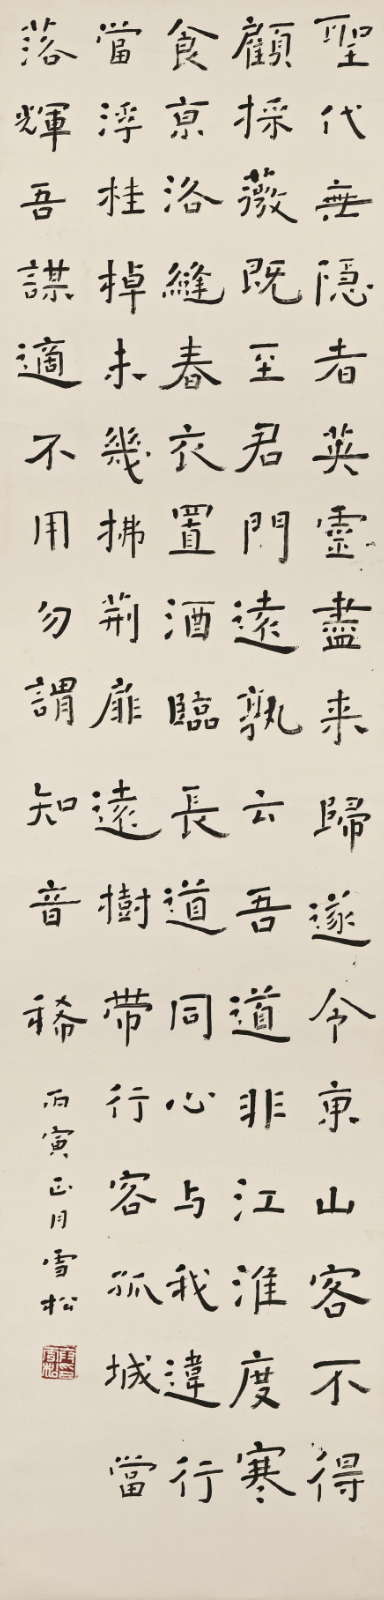 聖代無隐者英靈盡来歸遂令東山客不得
顧採薇既至君門遠孰云吾道非江淮度寒
食亰洛縫春衣置酒臨長道同心与我違行
當浮桂棹未幾拂荆扉遠樹帶行客孤城當
落輝吾謀適不用勿謂知音稀
丙寅正月雪松